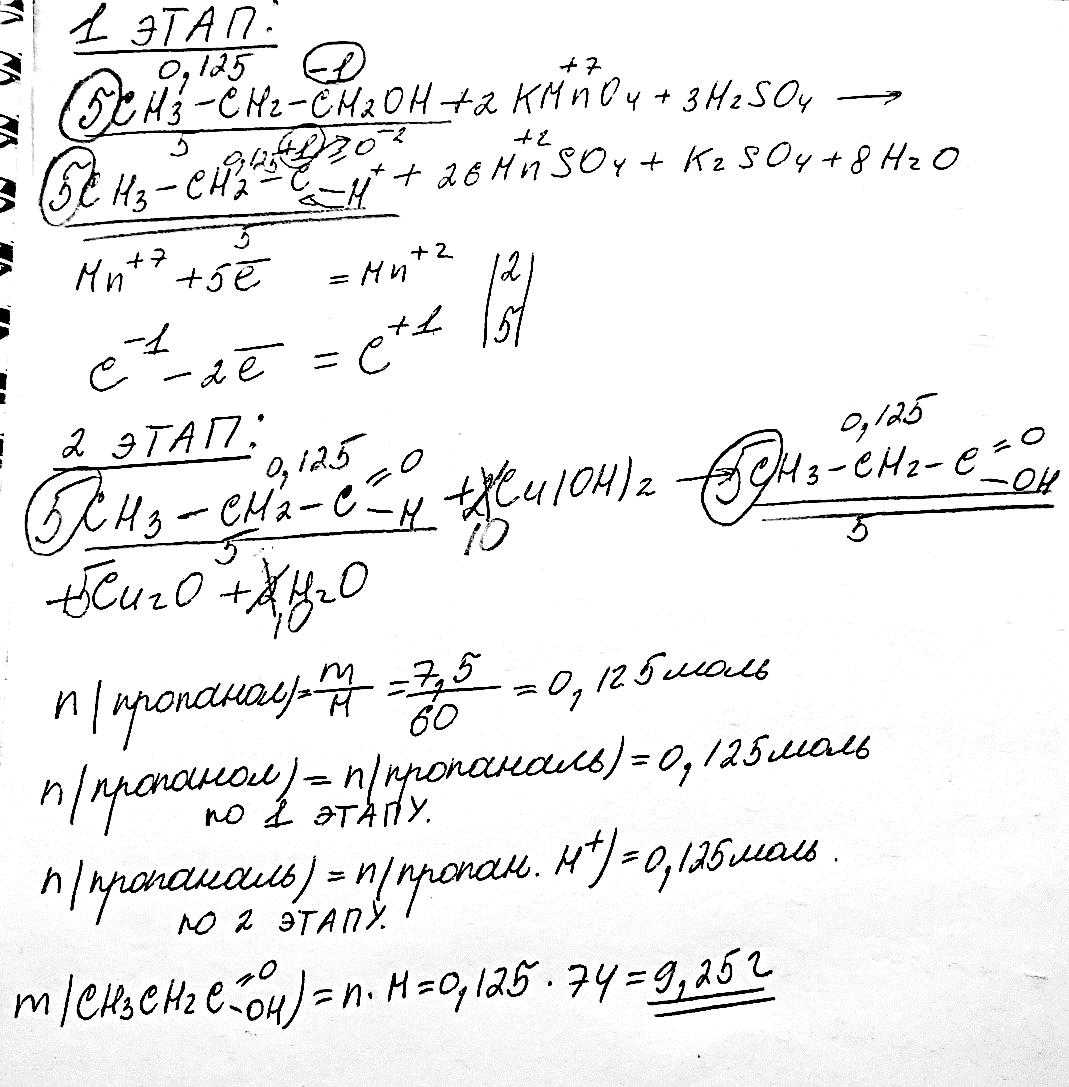 1 ЭТАП:
0,125 -1 +7
5CH3-CH2-CH2OH+2KMnO4+3H2SO4 →
5 0,125 +1 O-2 +2
5CH3-CH2-C=O-H + 2MnSO4+K2SO4+8H2O
5
Mn+7 +5e̅ =Mn+2 |2|
C-1 -2e̅ = C+1 |5|
2 ЭТАП:
0,125 0,125
5CH3-CH2-C=O-H + 10Cu(OH)2 → 5CH3-CH2-C=O-OH
5 5
+5Cu2O + 10H2O
n(пропанол)=m/M=7,5/60=0,125моль
n(пропанол)=n(пропаналь)=0,125моль
по 1 ЭТАПУ.
n(пропаналь)=n(пропан. H+)=0,125моль.
по 2 ЭТАПУ.
m(CH3CH2C=O-OH)=n·M=0,125·74=9,25г